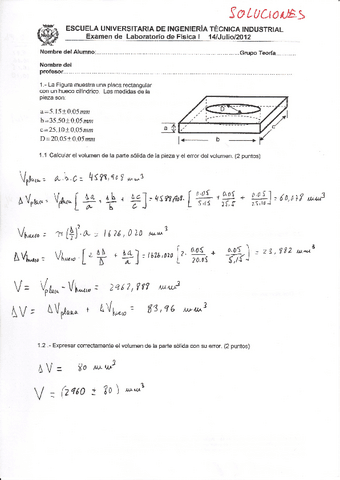 SOLUCIONES
ESCUELA UNIVERSITARIA DE INGENIERÍA TÉCNICA INDUSTRIAL
Examen de Laboratorio de Física I 14/Julio/2012
Nombre del Alumno: Grupo Teoría
Nombre del
profesor
1.- La Figura muestra una placa rectangular
con un hueco cilíndrico. Las medidas de la
pieza son:
a=5.15±0.05 mm
b=35.50±0.05 mm
c=25.10±0.05 mm
D=20.05±0.05 mm
D
a
b
c
1.1 Calcular el volumen de la parte sólida de la pieza y el error del volumen. (2 puntos)
V placa = a·b·c = 4588,908 mm³
ΔV placa = V placa [Δa/a + Δb/b + Δc/c] = 4588,908 [0.05/5.15 + 0.05/35.5 + 0.05/25.10] = 60,078 mm³
V hueco = π(D/2)²·a = 1626,020 mm³
ΔV hueco = V hueco [2 ΔD/D + Δa/a] = 1626,020 [2· 0.05/20.05 + 0.05/5,15] = 23,882 mm³
V = V placa - V hueco = 2962,888 mm³
ΔV = ΔV placa + ΔV hueco = 83,96 mm³
1.2 .- Expresar correctamente el volumen de la parte sólida con su error. (2 puntos)
ΔV = 80 mm³
V = (2960 ± 80) mm³